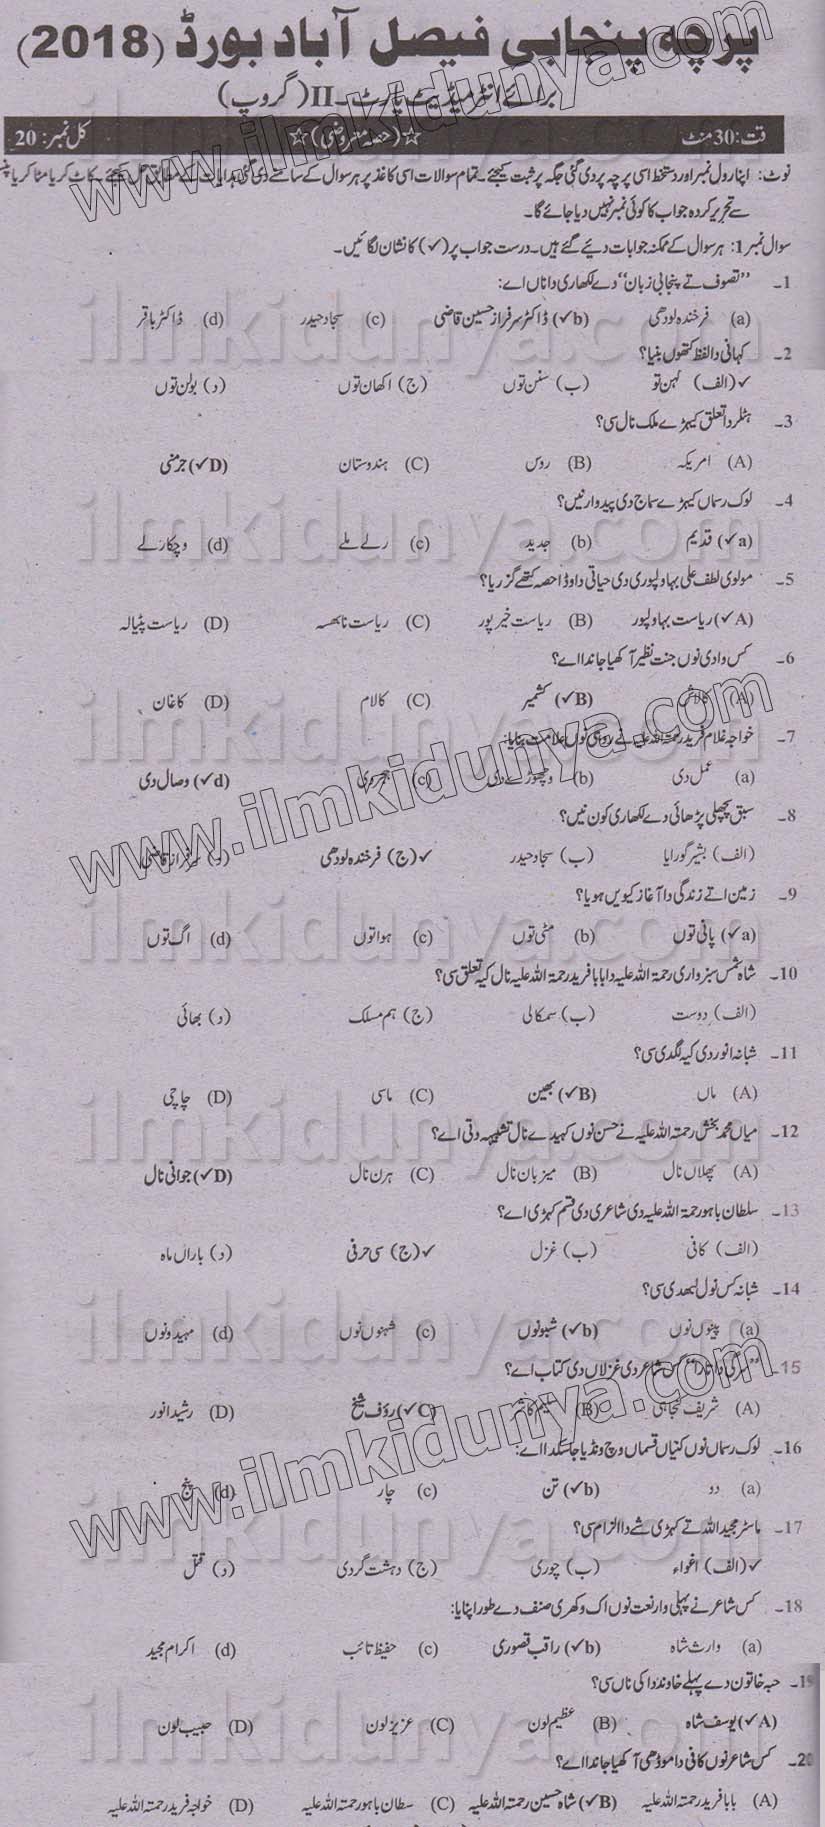 پرچہ پنجابی فیصل آباد بورڈ (2018)
برائے انٹرمیڈیٹ پارٹ۔II (گروپ)
قت: 30 منٹ ☆(حصہ معروضی)☆ کل نمبر: 20
نوٹ: اپنا رول نمبر اور دستخط اسی پرچہ پر دی گئی جگہ پر ثبت کیجئے۔ تمام سوالات اسی کاغذ پر ہر سوال کے سامنے دی گئی ہدایات کے مطابق حل کیجئے۔ کاٹ کر یا مٹا کر یا پنسل
سے تحریر کردہ جواب کا کوئی نمبر نہیں دیا جائے گا۔
سوال نمبر1: ہر سوال کے ممکنہ جوابات دیئے گئے ہیں۔ درست جواب پر (✓) کا نشان لگائیں۔
1۔ ”تصوف تے پنجابی زبان“ دے لکھاری دا ناں اے:
(a) فرخندہ لودھی (b✓) ڈاکٹر سرفراز حسین قاضی (c) سجاد حیدر (d) ڈاکٹر باقر
2۔ کہانی دا لفظ کتھوں بنیا؟
✓(الف) کہن تو (ب) سنن توں (ج) اکھان توں (د) بولن توں
3۔ ہٹلر دا تعلق کیہڑے ملک نال سی؟
(A) امریکہ (B) روس (C) ہندوستان (D✓) جرمنی
4۔ لوک رسماں کیہڑے سماج دی پیدوار نیں؟
(a✓) قدیم (b) جدید (c) رلے ملے (d) وچکارلے
5۔ مولوی لطف علی بہاولپوری دی حیاتی دا وڈا حصہ کتھے گزریا؟
(A✓) ریاست بہاولپور (B) ریاست خیرپور (C) ریاست نابھسہ (D) ریاست پٹیالہ
6۔ کس وادی نوں جنت نظیر آکھیا جاندا اے؟
(A) کالاش (B✓) کشمیر (C) کالام (D) کاغان
7۔ خواجہ غلام فرید رحمتہ اللہ علیہ نے روہی نوں علامت بنایا:
(a) عمل دی (b) وچھوڑے دی (c) ہجر دی (d✓) وصال دی
8۔ سبق پچھلی پڑھائی دے لکھاری کون نیں؟
(الف) بشیر گورایا (ب) سجاد حیدر ✓(ج) فرخندہ لودھی (د) سرفراز قاضی
9۔ زمین اتے زندگی دا آغاز کیویں ہویا؟
(a✓) پانی توں (b) مٹی توں (c) ہوا توں (d) اگ توں
10۔ شاہ شمس سبزواری رحمۃ اللہ علیہ دا بابا فرید رحمۃ اللہ علیہ نال کیہ تعلق سی؟
(الف) دوست (ب) سمکالی (ج) ہم مسلک (د) بھائی
11۔ شبانہ انور دی کیہ لگدی سی؟
(A) ماں (B✓) بھین (C) ماسی (D) چاچی
12۔ میاں محمد بخش رحمتہ اللہ علیہ نے حسن نوں کہیدے نال تشبیہہ دتی اے؟
(A) پھلاں نال (B) میزبان نال (C) ہرن نال (D✓) جوانی نال
13۔ سلطان باہو رحمۃ اللہ علیہ دی شاعری دی قسم کہڑی اے؟
(الف) کافی (ب) غزل ✓(ج) سی حرفی (د) باراں ماہ
14۔ شبانہ کس نول لبھدی سی؟
(a) پینوں نوں (b✓) شبو نوں (c) شہنوں نوں (d) مہیدو نوں
15۔ دا تارا“ کس شاعر دی غزلاں دی کتاب اے؟
(A) شریف کنجاہی (B) سلیم کاشر (C✓) رؤف شیخ (D) رشید انور
16۔ لوک رسماں نوں کنیاں قسماں وچ ونڈیا جا سکدا اے:
(a) دو (b✓) تن (c) چار (d) پنج
17۔ ماسٹر مجید اللہ تے کہڑی شے دا الزام سی؟
✓(الف) اغواء (ب) چوری (ج) دہشت گردی (د) قتل
18۔ کس شاعر نے پہلی وار نعت نوں اک وکھری صنف دے طور اپنایا:
(a) وارث شاہ (b✓) راقب قصوری (c) حفیظ تائب (d) اکرام مجید
19۔ حبہ خاتون دے پہلے خاوند دا کی ناں سی؟
(A✓) یوسف شاہ (B) عظیم لون (C) عزیز لون (D) حبیب لون
20۔ کس شاعر نوں کافی دا موڈھی آکھیا جاندا اے؟
(A) بابا فرید رحمتہ اللہ علیہ (B✓) شاہ حسین رحمتہ اللہ علیہ (C) سطان باہو رحمتہ اللہ علیہ (D) خواجہ فرید رحمتہ اللہ علیہ
www.ilmkidunya.com
www.ilmkidunya.com
www.ilmkidunya.com
ilmkidunya.com
ilmkidunya.com
ilmkidunya.com
ilmkidunya.com
ilmkidunya.com
ilmkidunya.com
ilmkidunya.com
ilmkidunya.com
ilmkidunya.com